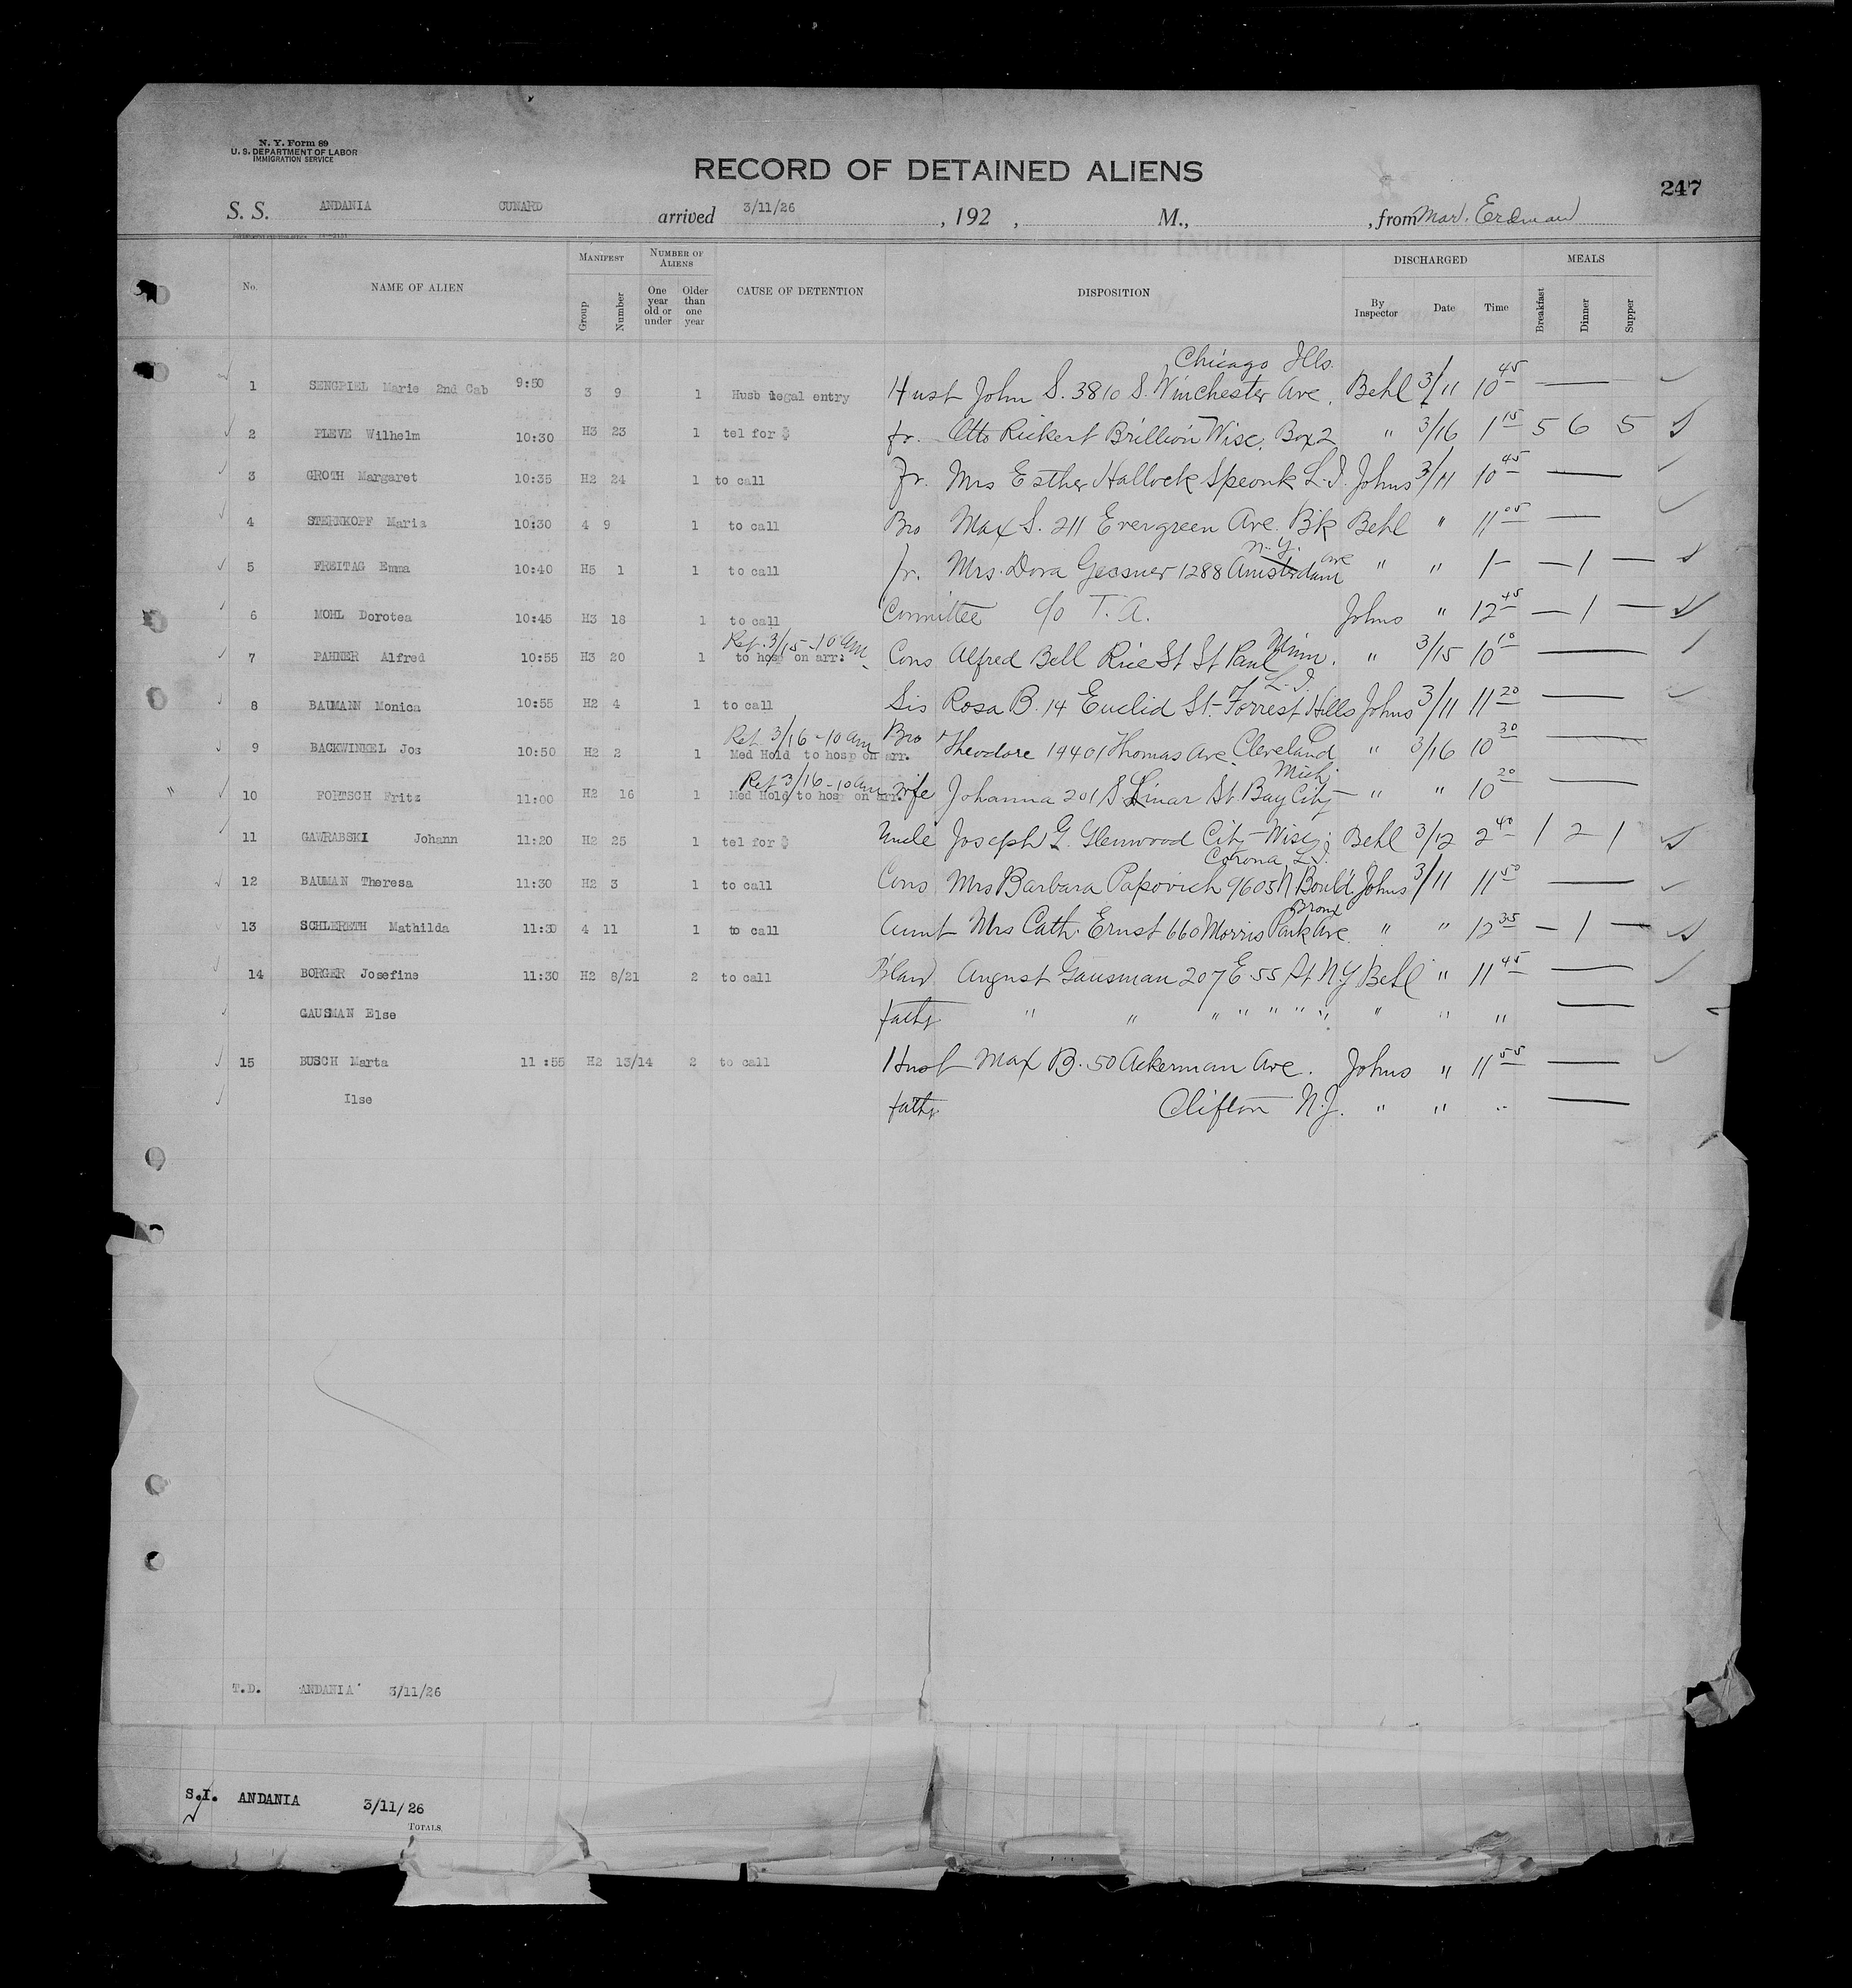 N. Y. Form 89
U. S. DEPARTMENT OF LABOR
IMMIGRATION SERVICE
RECORD OF DETAINED ALIENS
247
S. S. ANDANIA CUNARD arrived 3/11/26, 192 , M., , from Mar. Erdman
No. NAME OF ALIEN MANIFEST Group Number NUMBER OF ALIENS One year old or under Older than one year CAUSE OF DETENTION DISPOSITION DISCHARGED By Inspector Date Time MEALS Breakfast Dinner Supper
Chicago Ills.
1 SENGPIEL Marie 2nd Cab 9:50 3 9 1 Husb legal entry Hust John S. 3810 S. Winchester Ave. Behl 3/11 10 45 —
2 PLEVE Wilhelm 10:30 H3 23 1 tel for $ fr. Otto Rickert Brillion Wisc. Box 2 " 3/16 1 15 5 6 5
3 GROTH Margaret 10:35 H2 24 1 to call Fr. Mrs Esther Hallock Speonk L.I. Johns 3/11 10 45 —
4 STERNKOPF Maria 10:30 4 9 1 to call Bro Max S. 211 Evergreen Ave. Bk Behl " 11 05 —
N.Y.
5 FREITAG Emma 10:40 H5 1 1 to call fr. Mrs. Dora Gessner 1288 Amsterdam Ave " " 1 — — 1 —
6 MOHL Dorotea 10:45 H3 18 1 to call Committee c/o T. A. Johns " 12 45 — 1 —
Ret. 3/15 - 10 am
7 PAHNER Alfred 10:55 H3 20 1 to hosp on arr. Cons Alfred Bell Rice St St Paul Minn. " 3/15 10 10 —
L. I.
8 BAUMANN Monica 10:55 H2 4 1 to call Sis Rosa B. 14 Euclid St. Forrest Hills Johns 3/11 11 20 —
Ret. 3/16 - 10 am
9 BACKWINKEL Jos 10:50 H2 2 1 Med Hold to hosp on arr. Bro Theodore 14401 Thomas Ave. Cleveland O " 3/16 10 30 —
Ret 3/16 - 10 am Mich.
10 FORTSCH Fritz 11:00 H2 16 1 Med Hold to hosp on arr. wife Johanna 201 S. Linar St. Bay City " " 10 20 —
11 GAWRABSKI Johann 11:20 H2 25 1 tel for $ Uncle Joseph G. Glenwood City Wisc. Behl 3/12 2 40 1 2 1
Corona L.I.
12 BAUMAN Theresa 11:30 H2 3 1 to call Cons Mrs Barbara Papovich 9605 N Bould. Johns 3/11 11 50 —
Bronx
13 SCHLERETH Mathilda 11:30 4 11 1 to call Aunt Mrs Cath. Ernst 660 Morris Park Ave. " " 12 35 — 1 —
14 BORGER Josefine 11:30 H2 8/21 2 to call Blaw August Gausman 207 E. 55 St N.Y Behl " 11 45 —
GAUSMAN Else fathr " " " " " " " " " " —
15 BUSCH Marta 11:55 H2 13/14 2 to call Husb Max B. 50 Ackerman Ave. Johns " 11 55 —
Ilse fathr Clifton N.J. " " " —
T.D. ANDANIA 3/11/26
S.I. ANDANIA 3/11/26
TOTALS